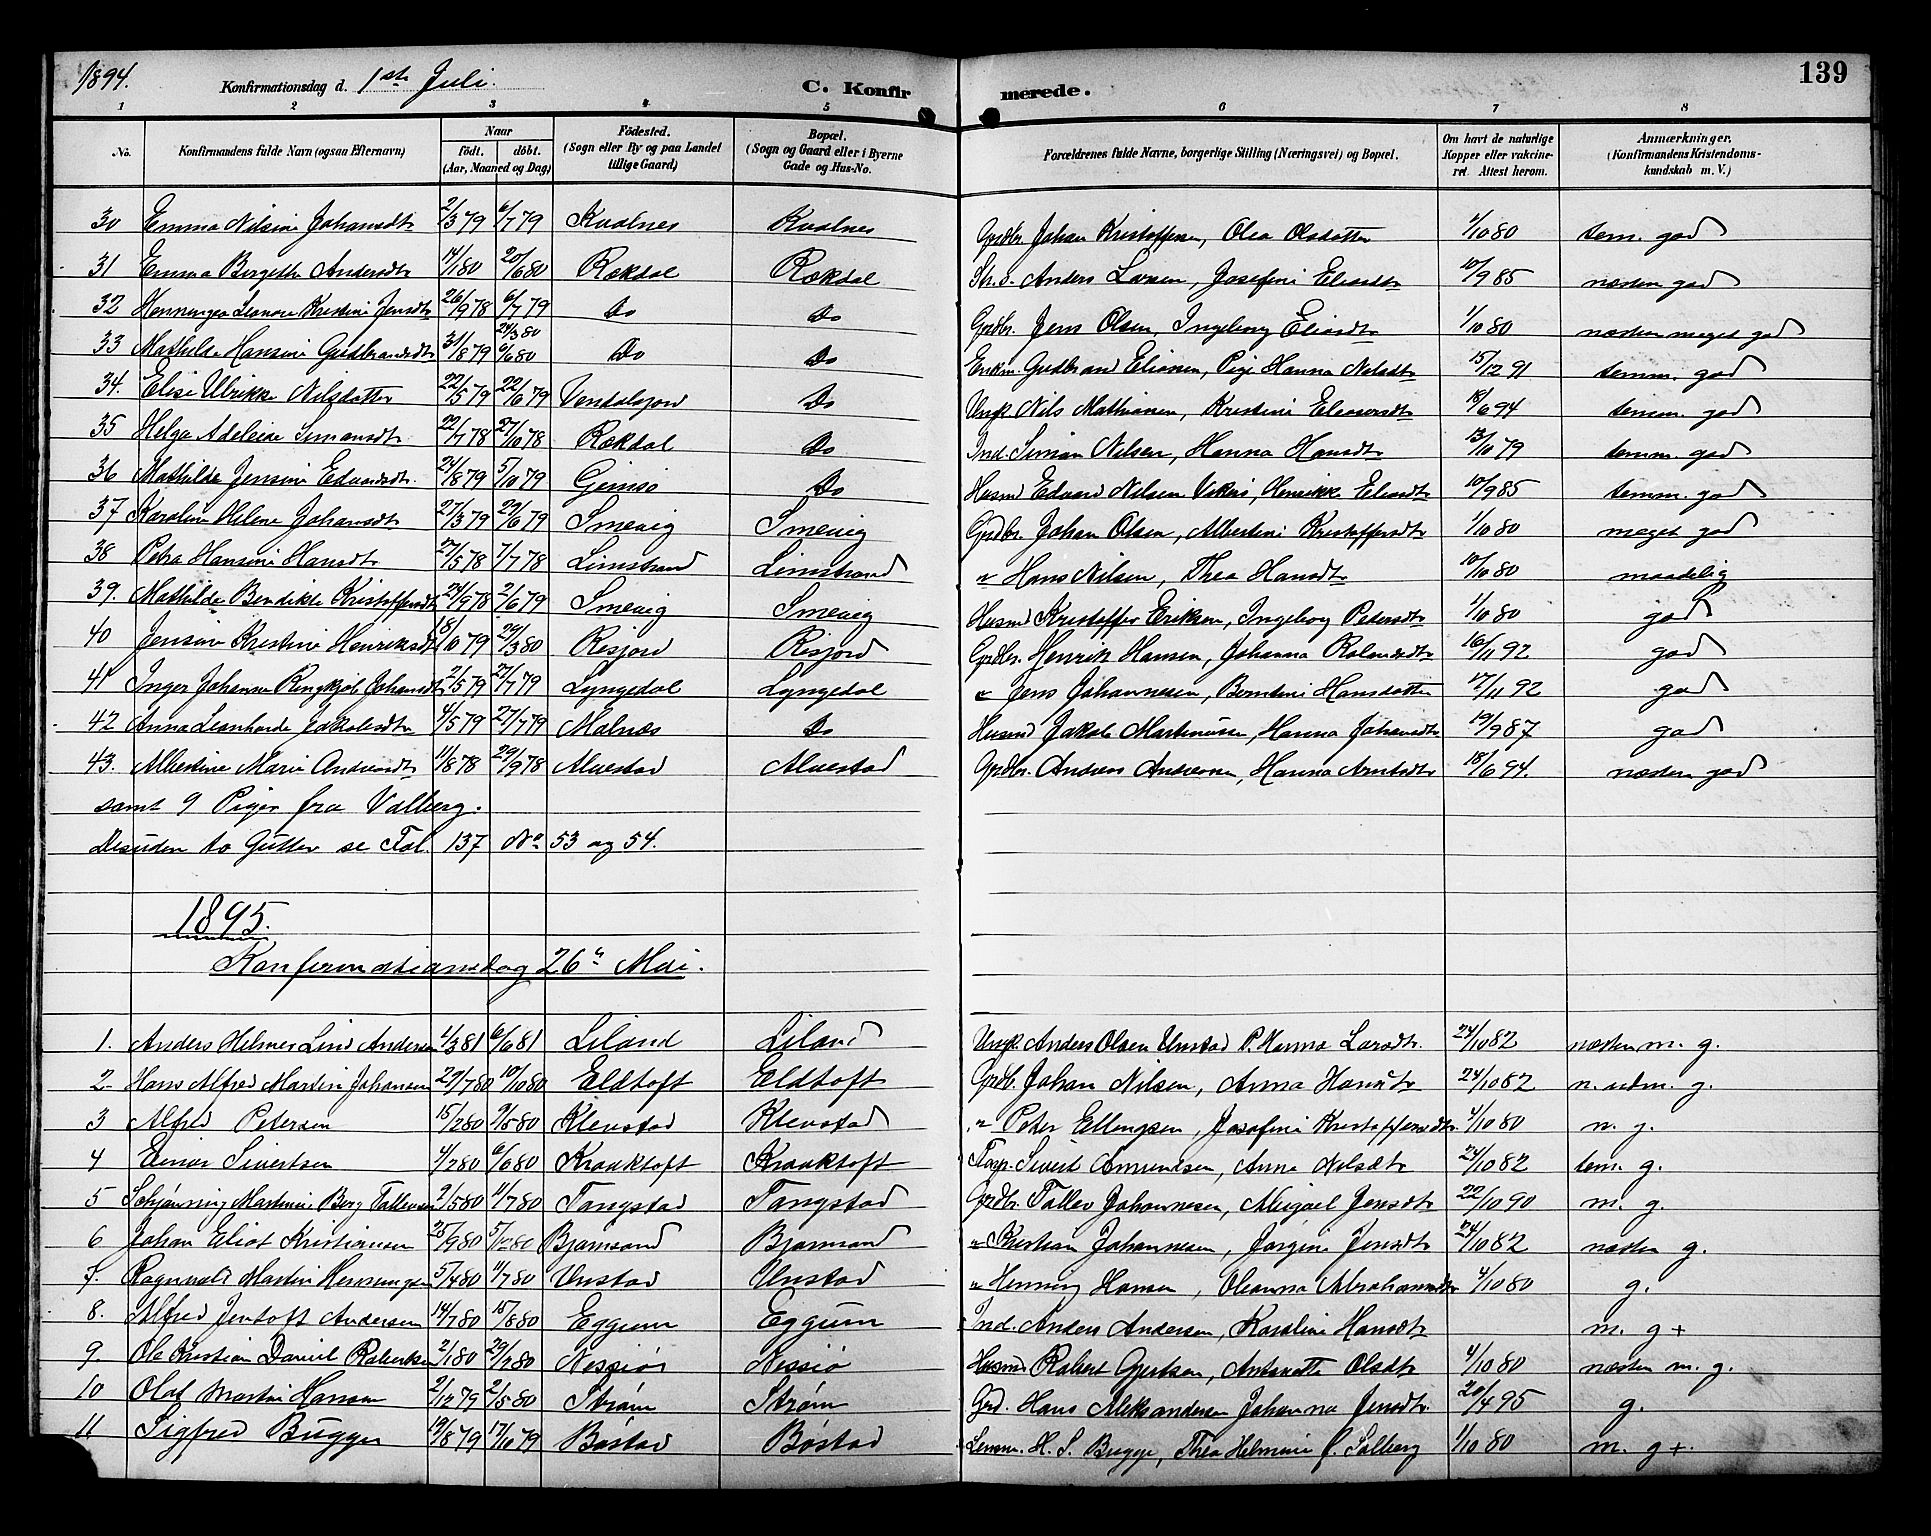 1894.
Konfirmationsdag d. 1ste Juli.
C. Konfirmerede.
139
1 2 3 4 5 6 7 8
No.
Konfirmandens fulde Navn (ogsaa Efternavn)
Naar
født. døbt.
(Aar, Maaned og Dag)
Fødested.
(Sogn eller By og paa Landet
tillige Gaard)
Bopæl.
(Sogn og Gaard eller i Byerne
Gade og Hus-No.
Forældrenes fulde Navne, borgerlige Stilling (Næringsvei) og Bopæl.
Om havt de naturlige
Kopper eller vakcine-
ret. Attest herom.
Anmærkninger,
(Konfirmandens Kristendoms-
kundskab m. V.)
30 Emma Nilsine Johansdtr 2/3 79 6/7 79 Kvalnes Kvalnes Grdbr. Johan Kristoffersen, Olea Olsdatter 1/10 80 tem. god
31 Emma Bergette Andersdtr 14/1 80 20/6 80 Rækdal Rækdal Anders Larsen, Josefine Eliasdtr 10/9 85 næsten god
32 Henningea Leonore Kristine Jensdtr 26/9 78 6/7 79 Do Do Grdbr. Jens Olsen, Ingeborg Eliasdtr 1/10 80 næsten meget god
33 Mathilde Hansine Gudbrandsdtr 31/8 79 24/3 80 6/6 80 Do Do Enkm. Gudbrand Eliasen, Pige Hanna Nilsdtr 15/12 91 temm. god
34. Elise Ulrikke Nilsdatter 22/5 79 22/6 79 Vendalsjord Do Ungk. Nils Mathiasen, Kristine Eleasersdtr 18/6 94 temm. god
35 Helga Adeleide Simonsdtr 22/7 78 27/10 78 Rækdal Do Ind. Simon Nilsen, Hanna Hansdtr 13/10 79 temm. god
36 Mathilde Jensine Edvardsdtr. 24/8 79 5/10 79 Gimsø Do Husmd Edvard Nilsen, Henrikke Eliasdtr 10/9 85 temm. god
37 Karoline Helene Johansdtr 27/3 79 29/6 79 Smevig Smevig Grdbr. Johan Olsen, Albertine Kristoffersdtr 1/10 80 meget god
38 Petra Hansine Hansdtr 27/5 78 7/7 78 Limstrand Limstrand " Hans Nilsen, Thea Hansdtr 10/10 80 maadelig
39. Mathilde Bendikte Kristoffersdtr 24/9 78 2/6 79 Smevig Smevig Husmd Kristoffer Eriksen, Ingeborg Petersdtr 1/10 80 god
40 Jensine Kristine Henriksdtr 18/10 79 29/3 80 Risjord Risjord Grdbr. Henrik Hansen, Johanna Rolandsdtr 16/11 92 god
41 Inger Johanne Ringkjøb Johansdtr 2/5 79 27/7 79 Lyngedal Lyngedal " Jens Johannesen, Berntine Hansdatter 17/11 92 god
42 Anna Leonharde Jakobsdtr 4/5 79 27/7 79 Malnæs Do Husmd Jakob Martinusen, Hanna Johansdtr 19/9 87 god
43. Albertine Marie Andreasdtr 11/8 78 29/9 78 Alvestad Alvestad Grdbr. Andreas Andersen, Hanna Arntsdtr 18/6 94. næsten god
samt 9 Piger fra Valberg.
Desuden to Gutter se Fol. 137 No 53 og 54.
1895.
Konfirmationsdag 26de Mai.
1. Anders Helmer Lind Andersen 1/3 81 6/6 81 Liland Liland Ungk. Anders Olsen Unstad P. Hanna Larsdtr. 24/10 82 næsten m. g.
2. Hans Alfred Martin Johansen 29/7 80 10/10 80 Eldtoft Eldtoft Grdb. Johan Nilsen, Anna Hansdtr 24/10 82 n. udm. g.
3 Alfred Petersen 15/2 80 9/5 80 Klevstad Klevstad " Peter Ellingsen, Josefine Kristoffersdtr. 4/10 80 n. g.
4 Einar Sivertsen 4/2 80 6/6 80 Kraaktoft Kraaktoft Sivert Amundsen, Anna Nilsdtr 24/10 82 tem. g.
5 Schjønning Martinus Berg Tollevsen 2/5 80 11/7 80 Tangstad Tangstad Grdbr. Tollev Johannesen, Abigael Jensdtr 22/10 90 m. g.
6 Johan Eliot Kristiansen 28/9 80 5/12 80 Bjørnsand Bjørnsand " Kristian Johannesen, Jørgine Jensdtr 24/10 82 næsten g.
7. Ragnvald Martin Henningsen 5/4 80 11/7 80 Unstad Unstad " Henning Hansen, Oleanna Abrahamsdtr 4/10 80 g.
8. Alfred Jentoft Andersen 14/7 80 15/8 80 Eggum Eggum Ind. Anders Andersen, Karoline Hansdtr m. g +
9. Ole Kristian Daniel Robertsen 2/1 80 29/2 80 Nessiø Nessiø Husmd Robert Gjertsen, Antonette Olsdtr 4/10 80 næsten m. g.
10 Olaf Martin Hansen 2/12 79 2/5 80 Strøm Strøm Grd. Hans Aleksandersen Johanna Jensdtr. 20/4 95 g.
11 Sigfred Bugge 19/8 79 17/10 79 Bøstad Bøstad Lensm. H. S. Bugge, Thea Helmine f. Solberg 1/10 80 m. g +.